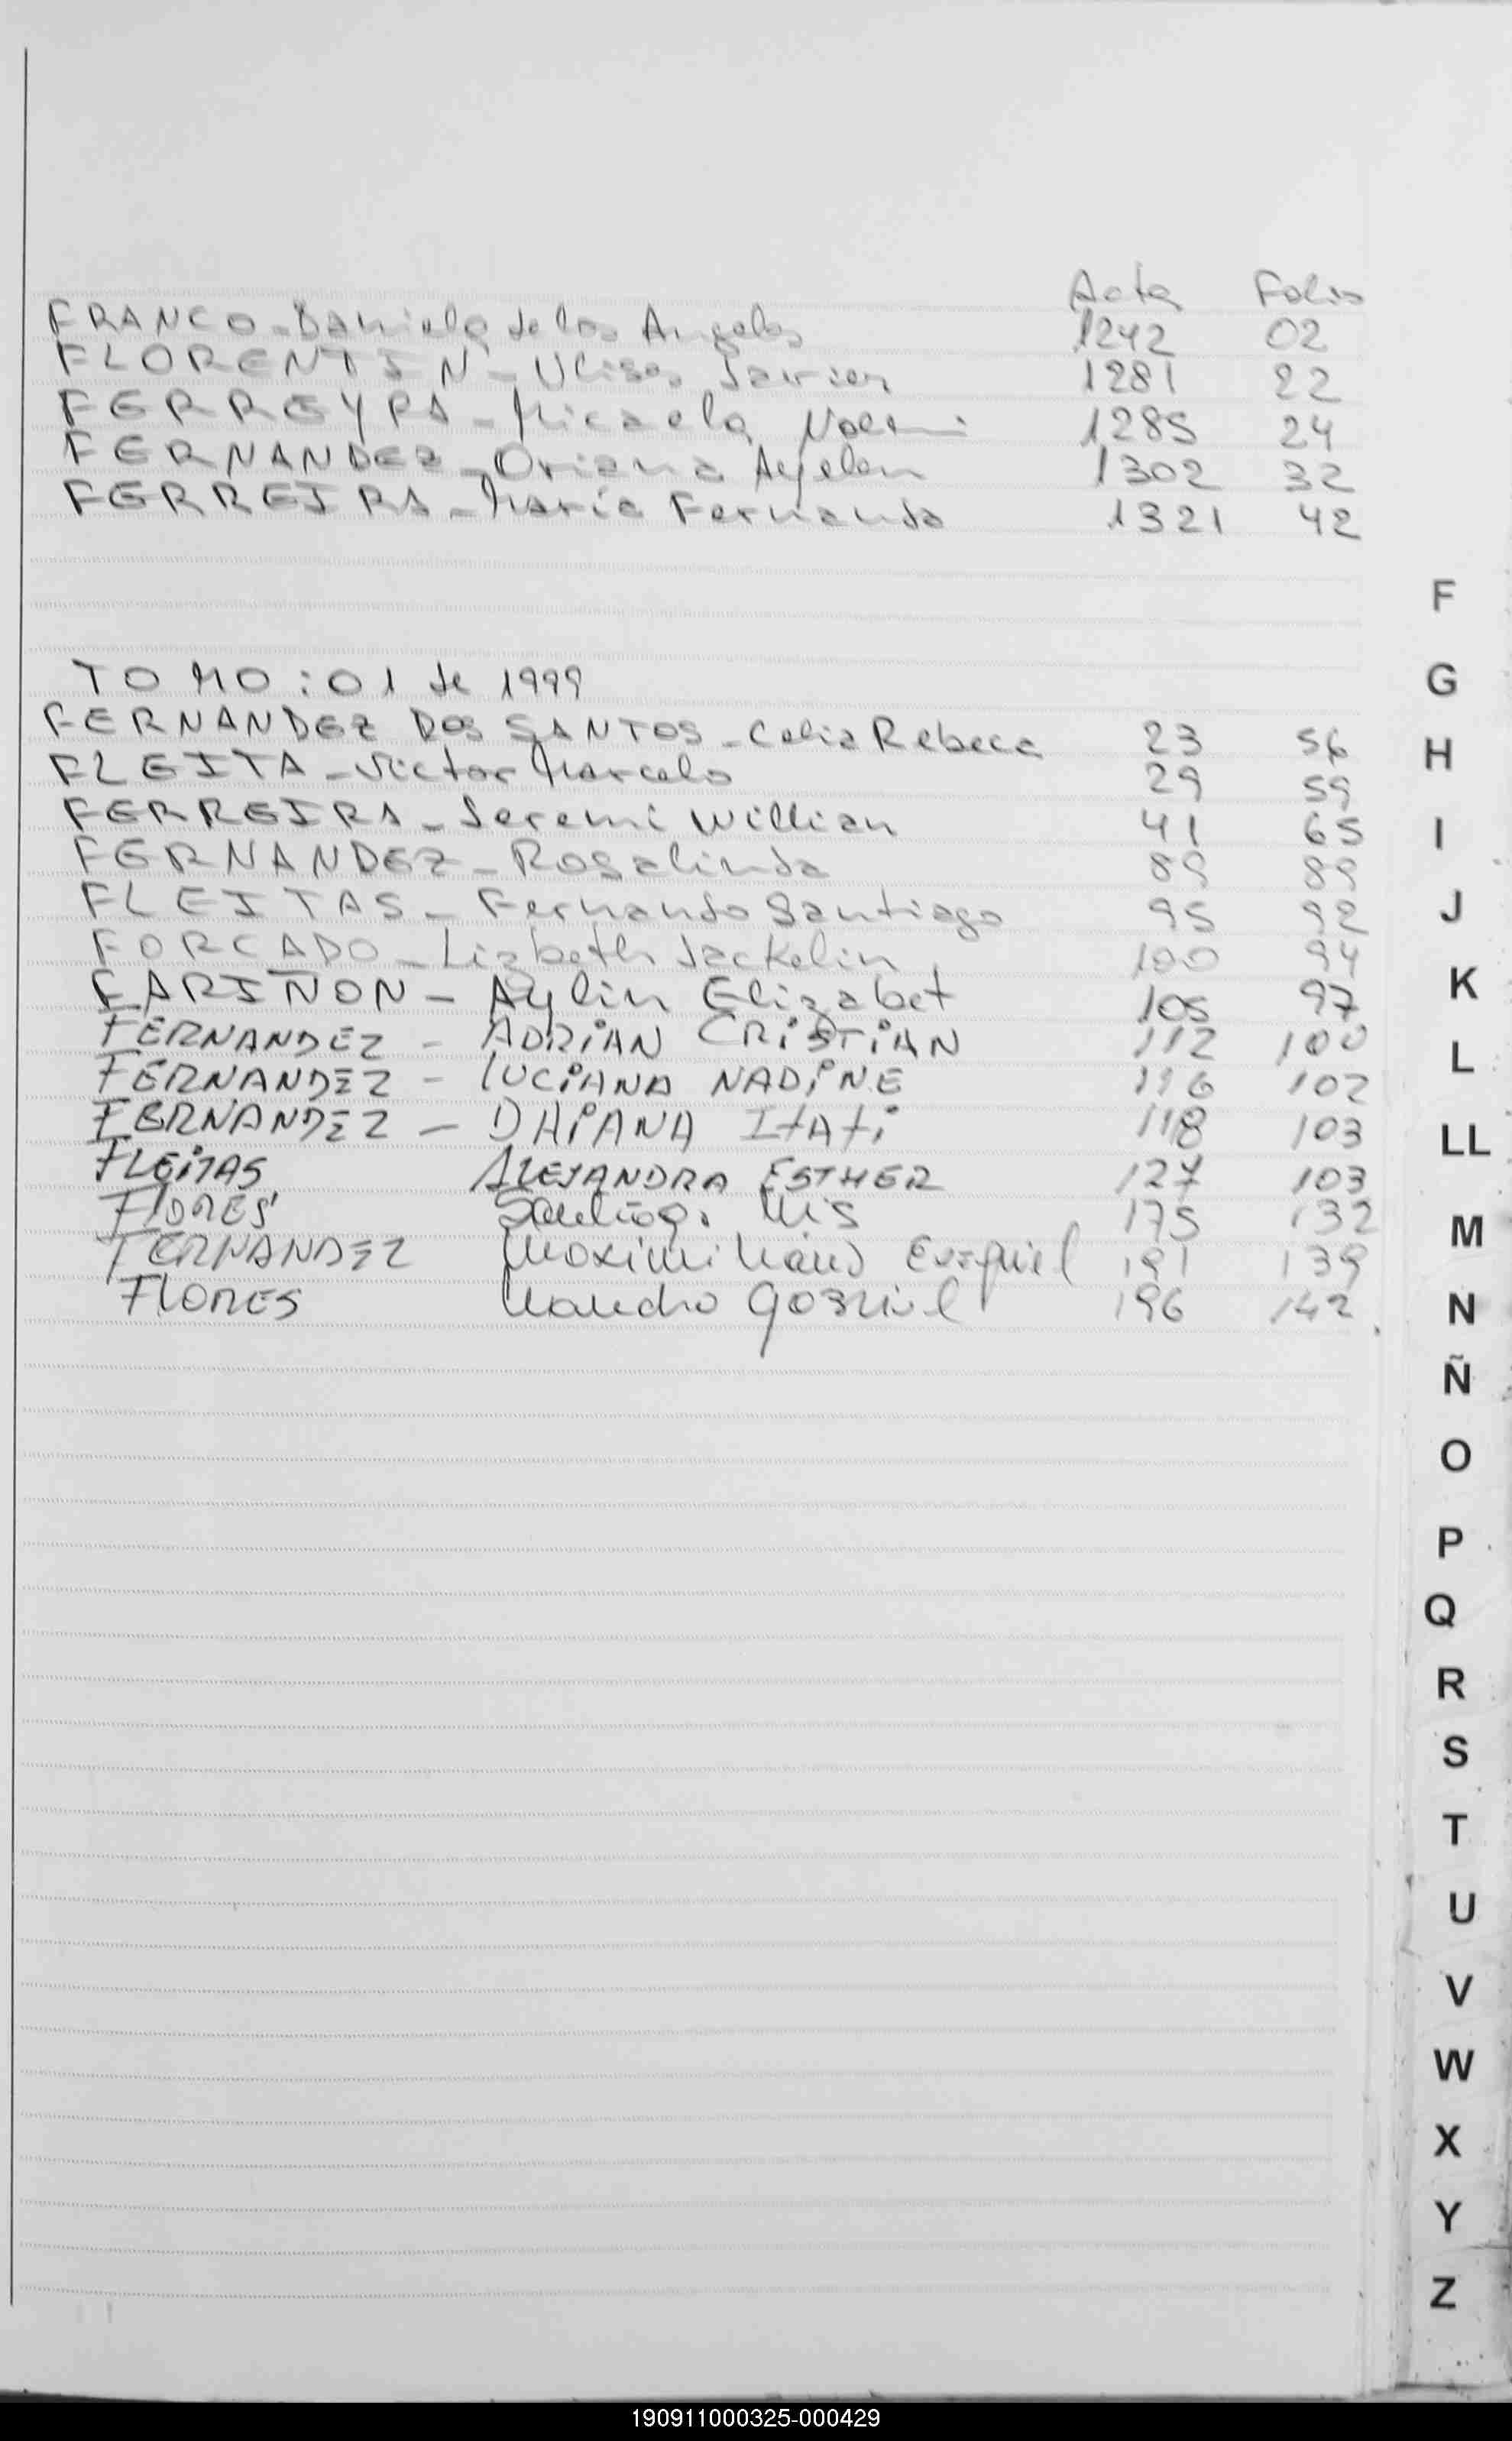 Acta Folio
FRANCO - Daniela de los Angeles 1242 02
FLORENTIN - Ulises Javier 1281 22
FERREYRA - Micaela Noemi 1285 24
FERNANDEZ - Oriana Ayelen 1302 32
FERREIRA - Maria Fernanda 1321 42
TOMO: 01 de 1999
FERNANDEZ DOS SANTOS - Celia Rebeca 23 56
FLEITA - Victor Marcelo 29 59
FERREIRA - Jeremi Willian 41 65
FERNANDEZ - Rosalinda 89 89
FLEITAS - Fernando Santiago 95 92
FORCADO - Lizbeth Jackelin 100 94
FARIÑON - Aylin Elizabet 105 97
FERNANDEZ - ADRIAN CRISTIAN 112 100
FERNANDEZ - LUCIANA NADINE 116 102
FERNANDEZ - DAIANA ITATI 118 103
FLEITAS ALEJANDRA ESTHER 127 103
FLORES Santiago Luis 175 132
FERNANDEZ Maximiliano Ezequiel 191 139
FLORES 196 142
F
G
H
I
J
K
L
LL
M
N
Ñ
O
P
Q
R
S
T
U
V
W
X
Y
Z
190911000325-000429